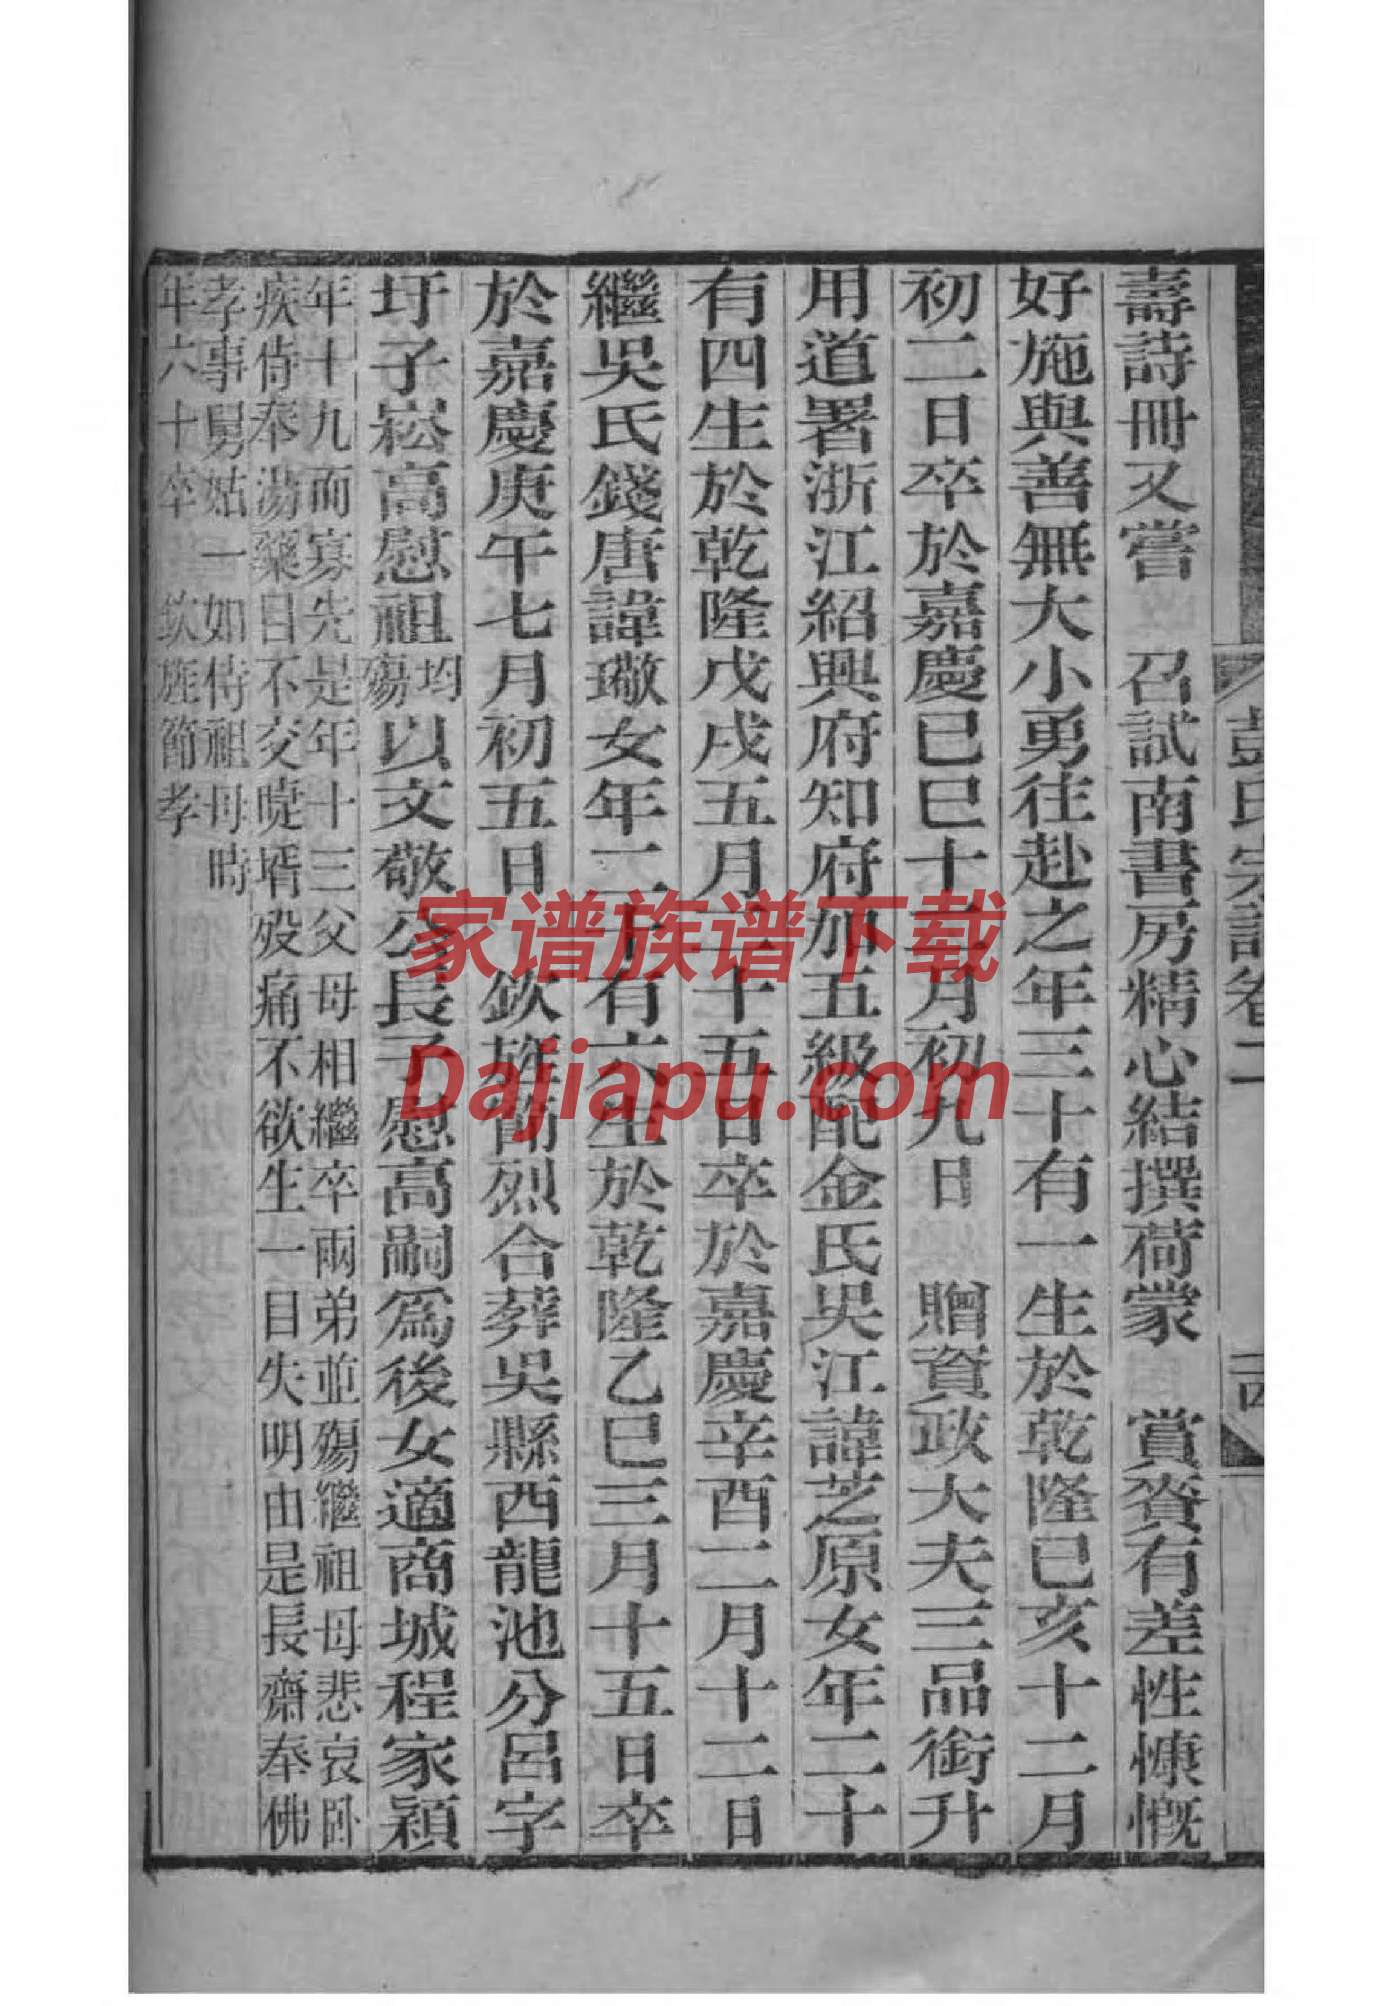 壽詩冊又嘗　召試南書房精心結撰荷蒙　賞賚有差性慷慨
好施與善無大小勇往赴之年三十有一生於乾隆己亥十二月
初二日卒於嘉慶己巳十二月初九日　贈資政大夫三品銜升
用道署浙江紹興府知府加五級配金氏吳江諱芝原女年二十
有四生於乾隆戊戌五月二十五日卒於嘉慶辛酉二月十二日
繼吳氏錢唐諱璥女年二十有六生於乾隆乙巳三月十五日卒
於嘉慶庚午七月初五日　欽旌節烈合葬吳縣西龍池分呂字
圩子崧高慰祖均殤以文敬公長子慰高嗣爲後女適商城程家頴
年十九而寡先是年十三父母相繼卒兩弟並殤繼祖母悲哀臥
疾侍奉湯藥目不交睫壻歿痛不欲生一目失明由是長齋奉佛
孝事舅姑一如侍祖母時
年六十卒　欽旌節孝
彭氏宗譜卷二
家谱族谱下载
Dajiapu.com